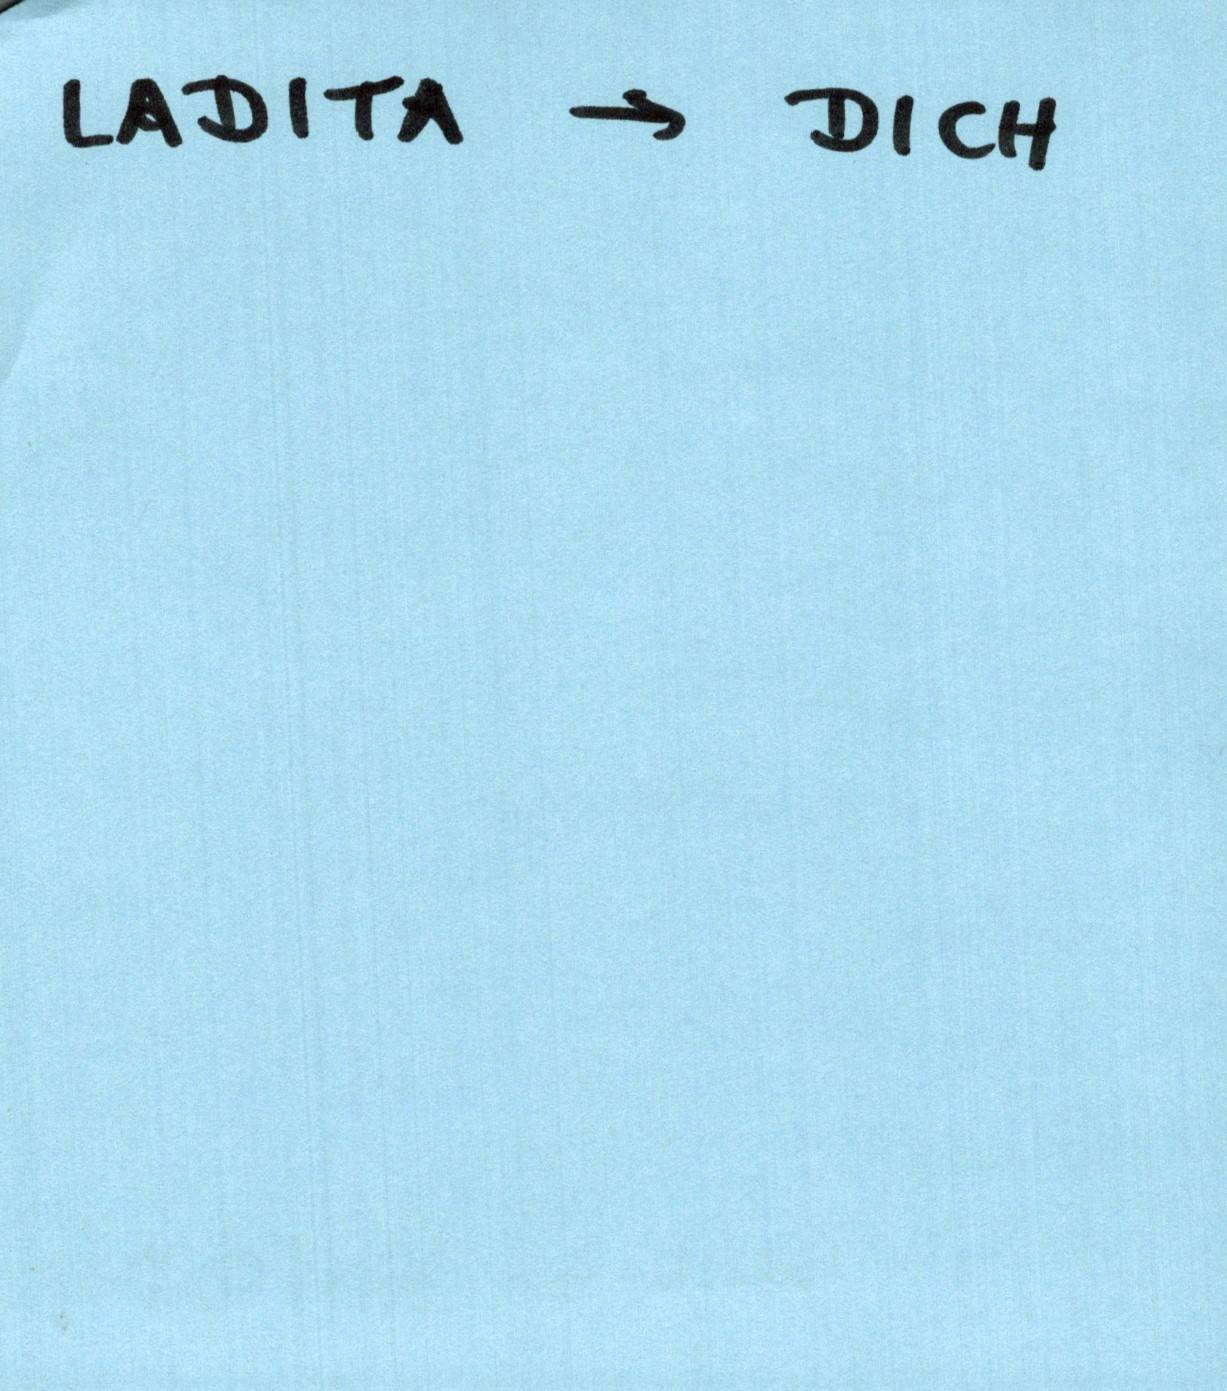 LADITA → DICH